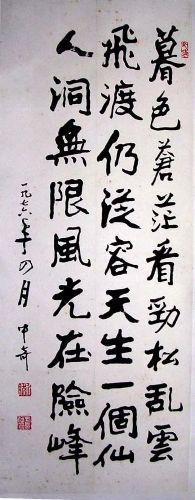 暮色蒼茫看勁松亂雲
飛渡仍從容天生一個仙
人洞無限風光在險峰
一九七六年四月